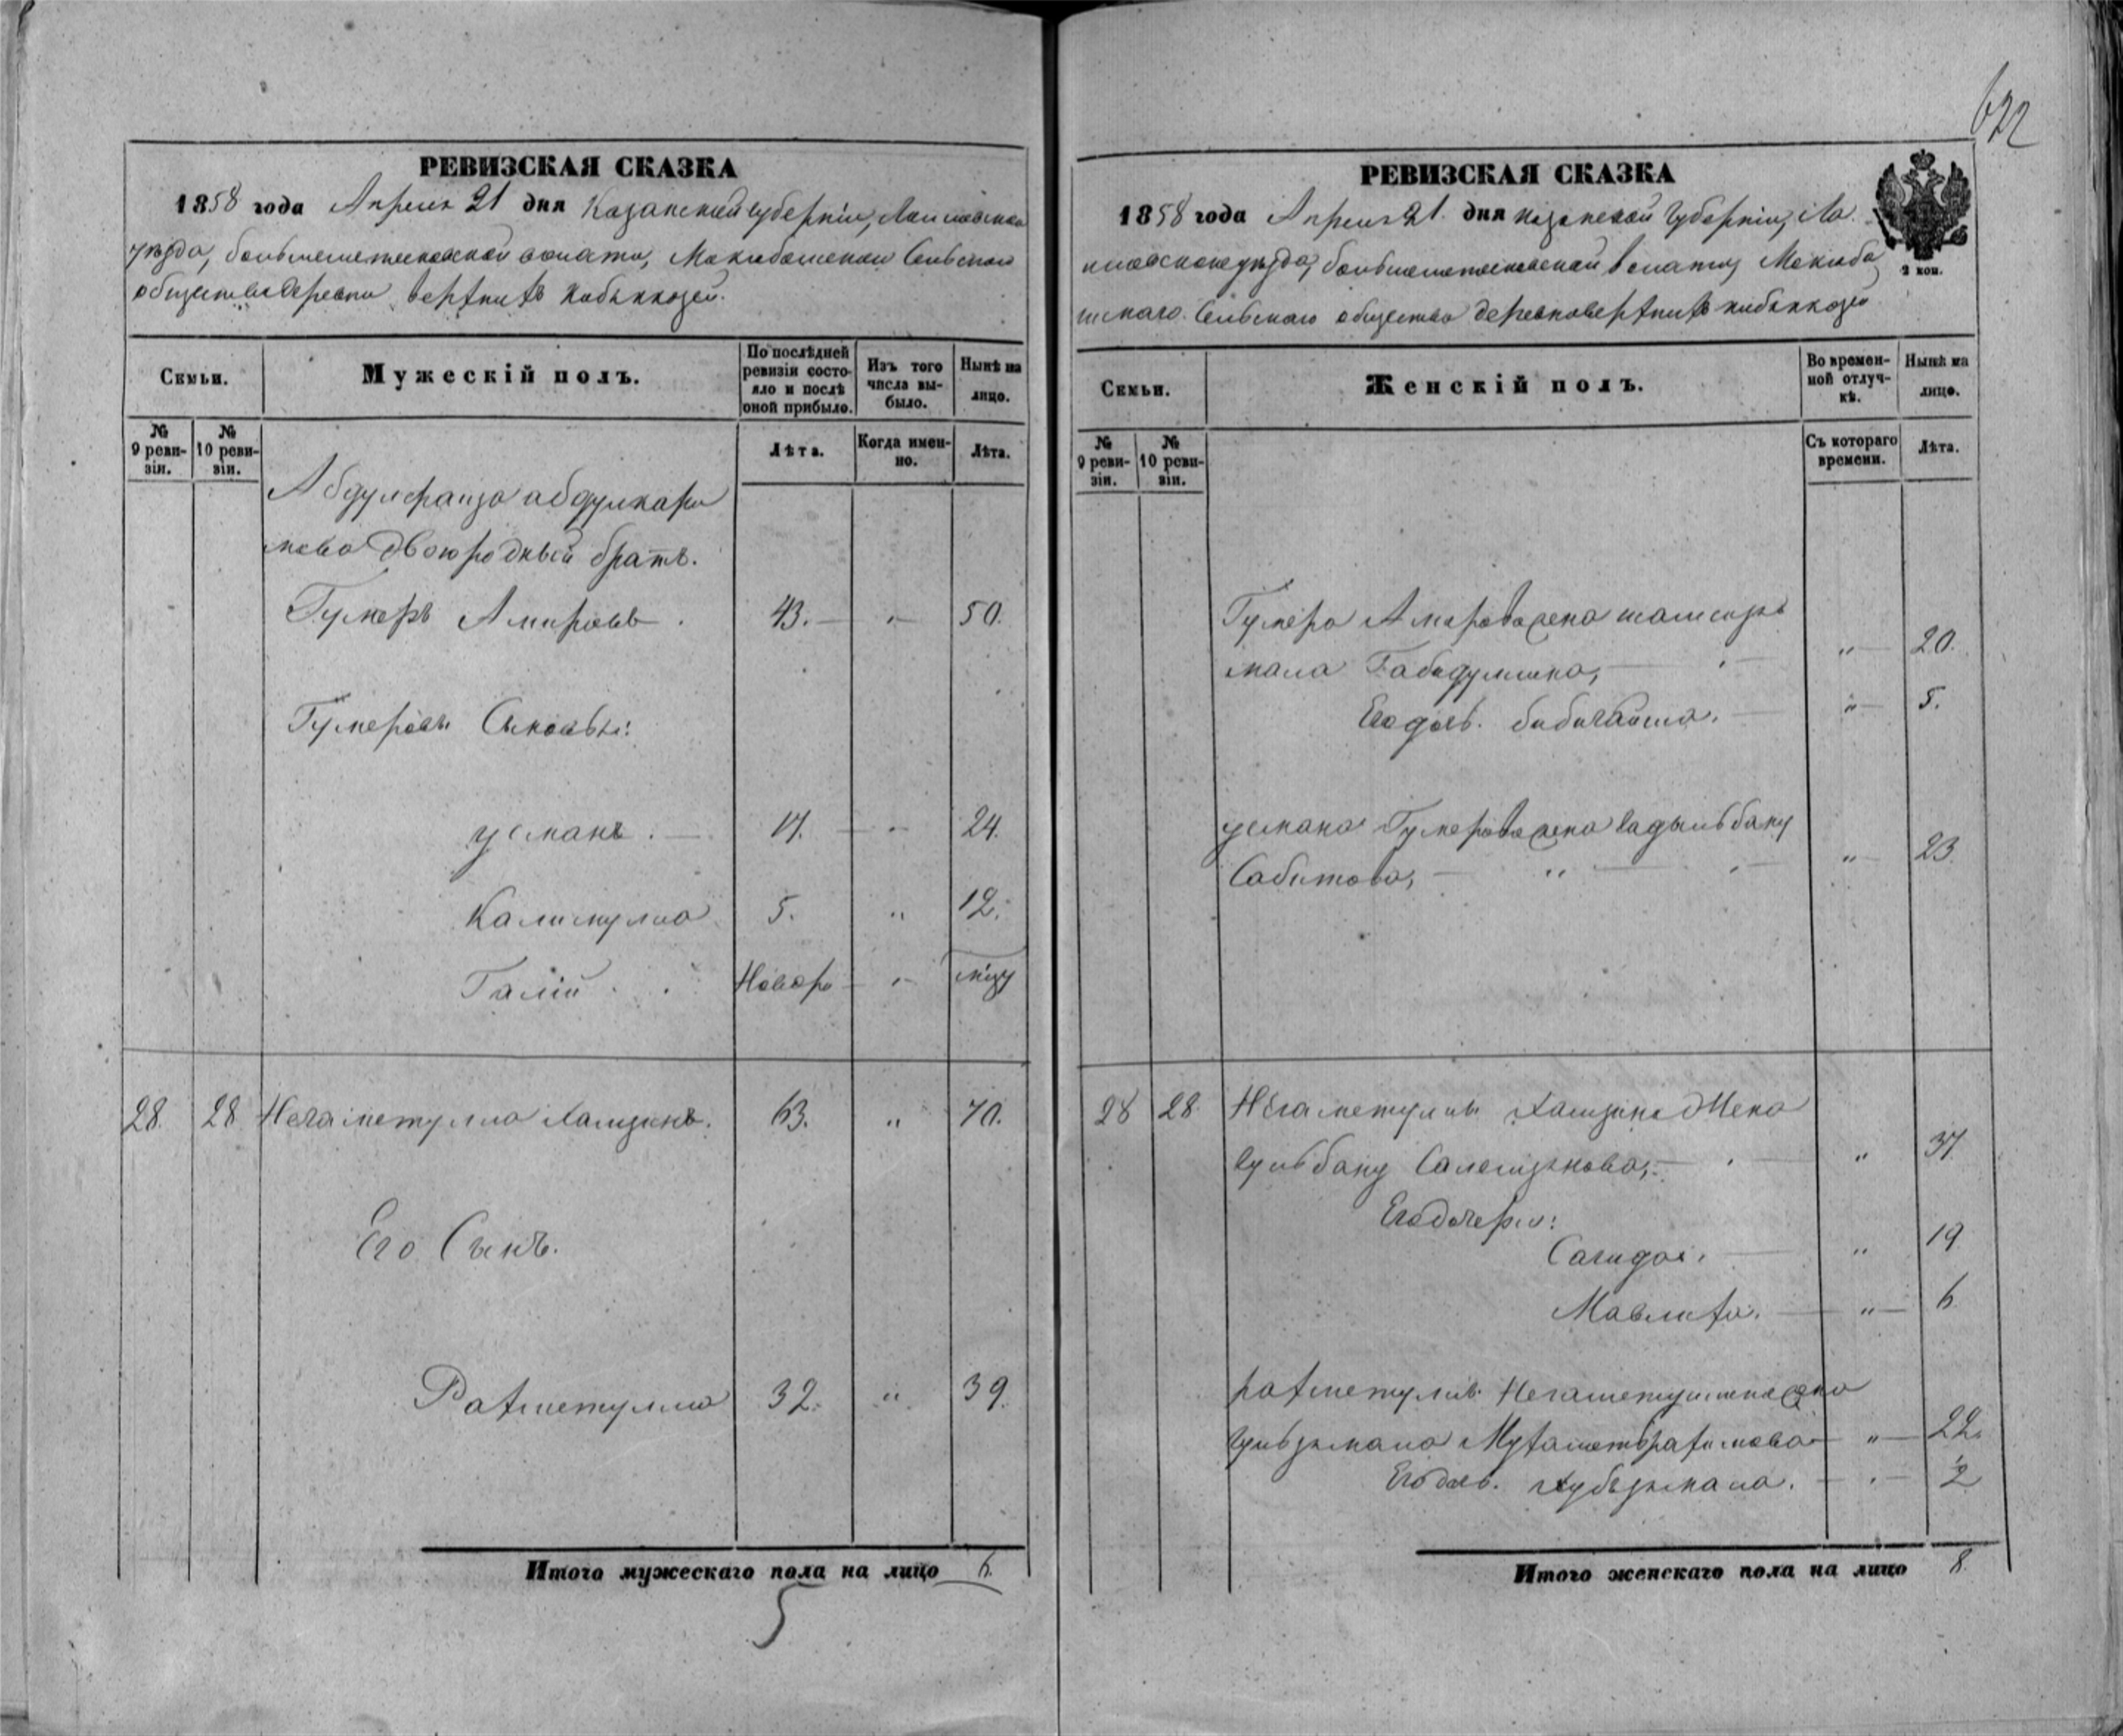 РЕВИЗСКАЯ СКАЗКА
1858 года Апреля 21 дня Казанской губерніи, Лаишевскаго
уѣзда, больше волости, Сельскаго
общества деревни верхнихъ Кибякозей.
Семьи.
Мужескій полъ.
По послѣдней ревизіи состояло и послѣ оной прибыло.
Изъ того числа выбыло.
Нынѣ на лицо.
№ 9 ревизіи.
№ 10 ревизіи.
Лѣта.
Когда именно.
Лѣта.
Абдулфаиза абдулкари
мова двоюродный братъ.
Гумеръ Амировъ. 43. " 50.
Гумеровы Сыновья:
усманъ. 17. " 24.
Калимулла 5. " 12.
Галій Новоро " 
28. 28. Негаметулла Хамзинъ. 63. " 70.
Его Сынъ.
Рахметулла 32. " 39.
Итого мужескаго пола на лицо 6.
5
622
РЕВИЗСКАЯ СКАЗКА
2 коп.
1858 года Апреля 21. дня казанской губерніи, Ла
уѣзда, волости,
Сельскаго общества деревни верхнихъ кибякозей
Семьи.
Женскій полъ.
Во временной отлучкѣ.
Нынѣ на лицо.
№ 9 ревизіи.
№ 10 ревизіи.
Съ котораго времени.
Лѣта.
Гумера Амирова жена
мала Габидуллина, " 20.
Его дочь. бибигайша. " 5.
усмана Гумерова жена бану
Сабитова, " 23.
28 28. Негаметуллы Хамзина Жена
бану " 37
Его дочери:
Сагида. " 19
Мавлиха. " 6
рахметуллы Негаметуллина жена
Мухаметрахимова " 22.
Его дочь. " 2
Итого женскаго пола на лицо 8.